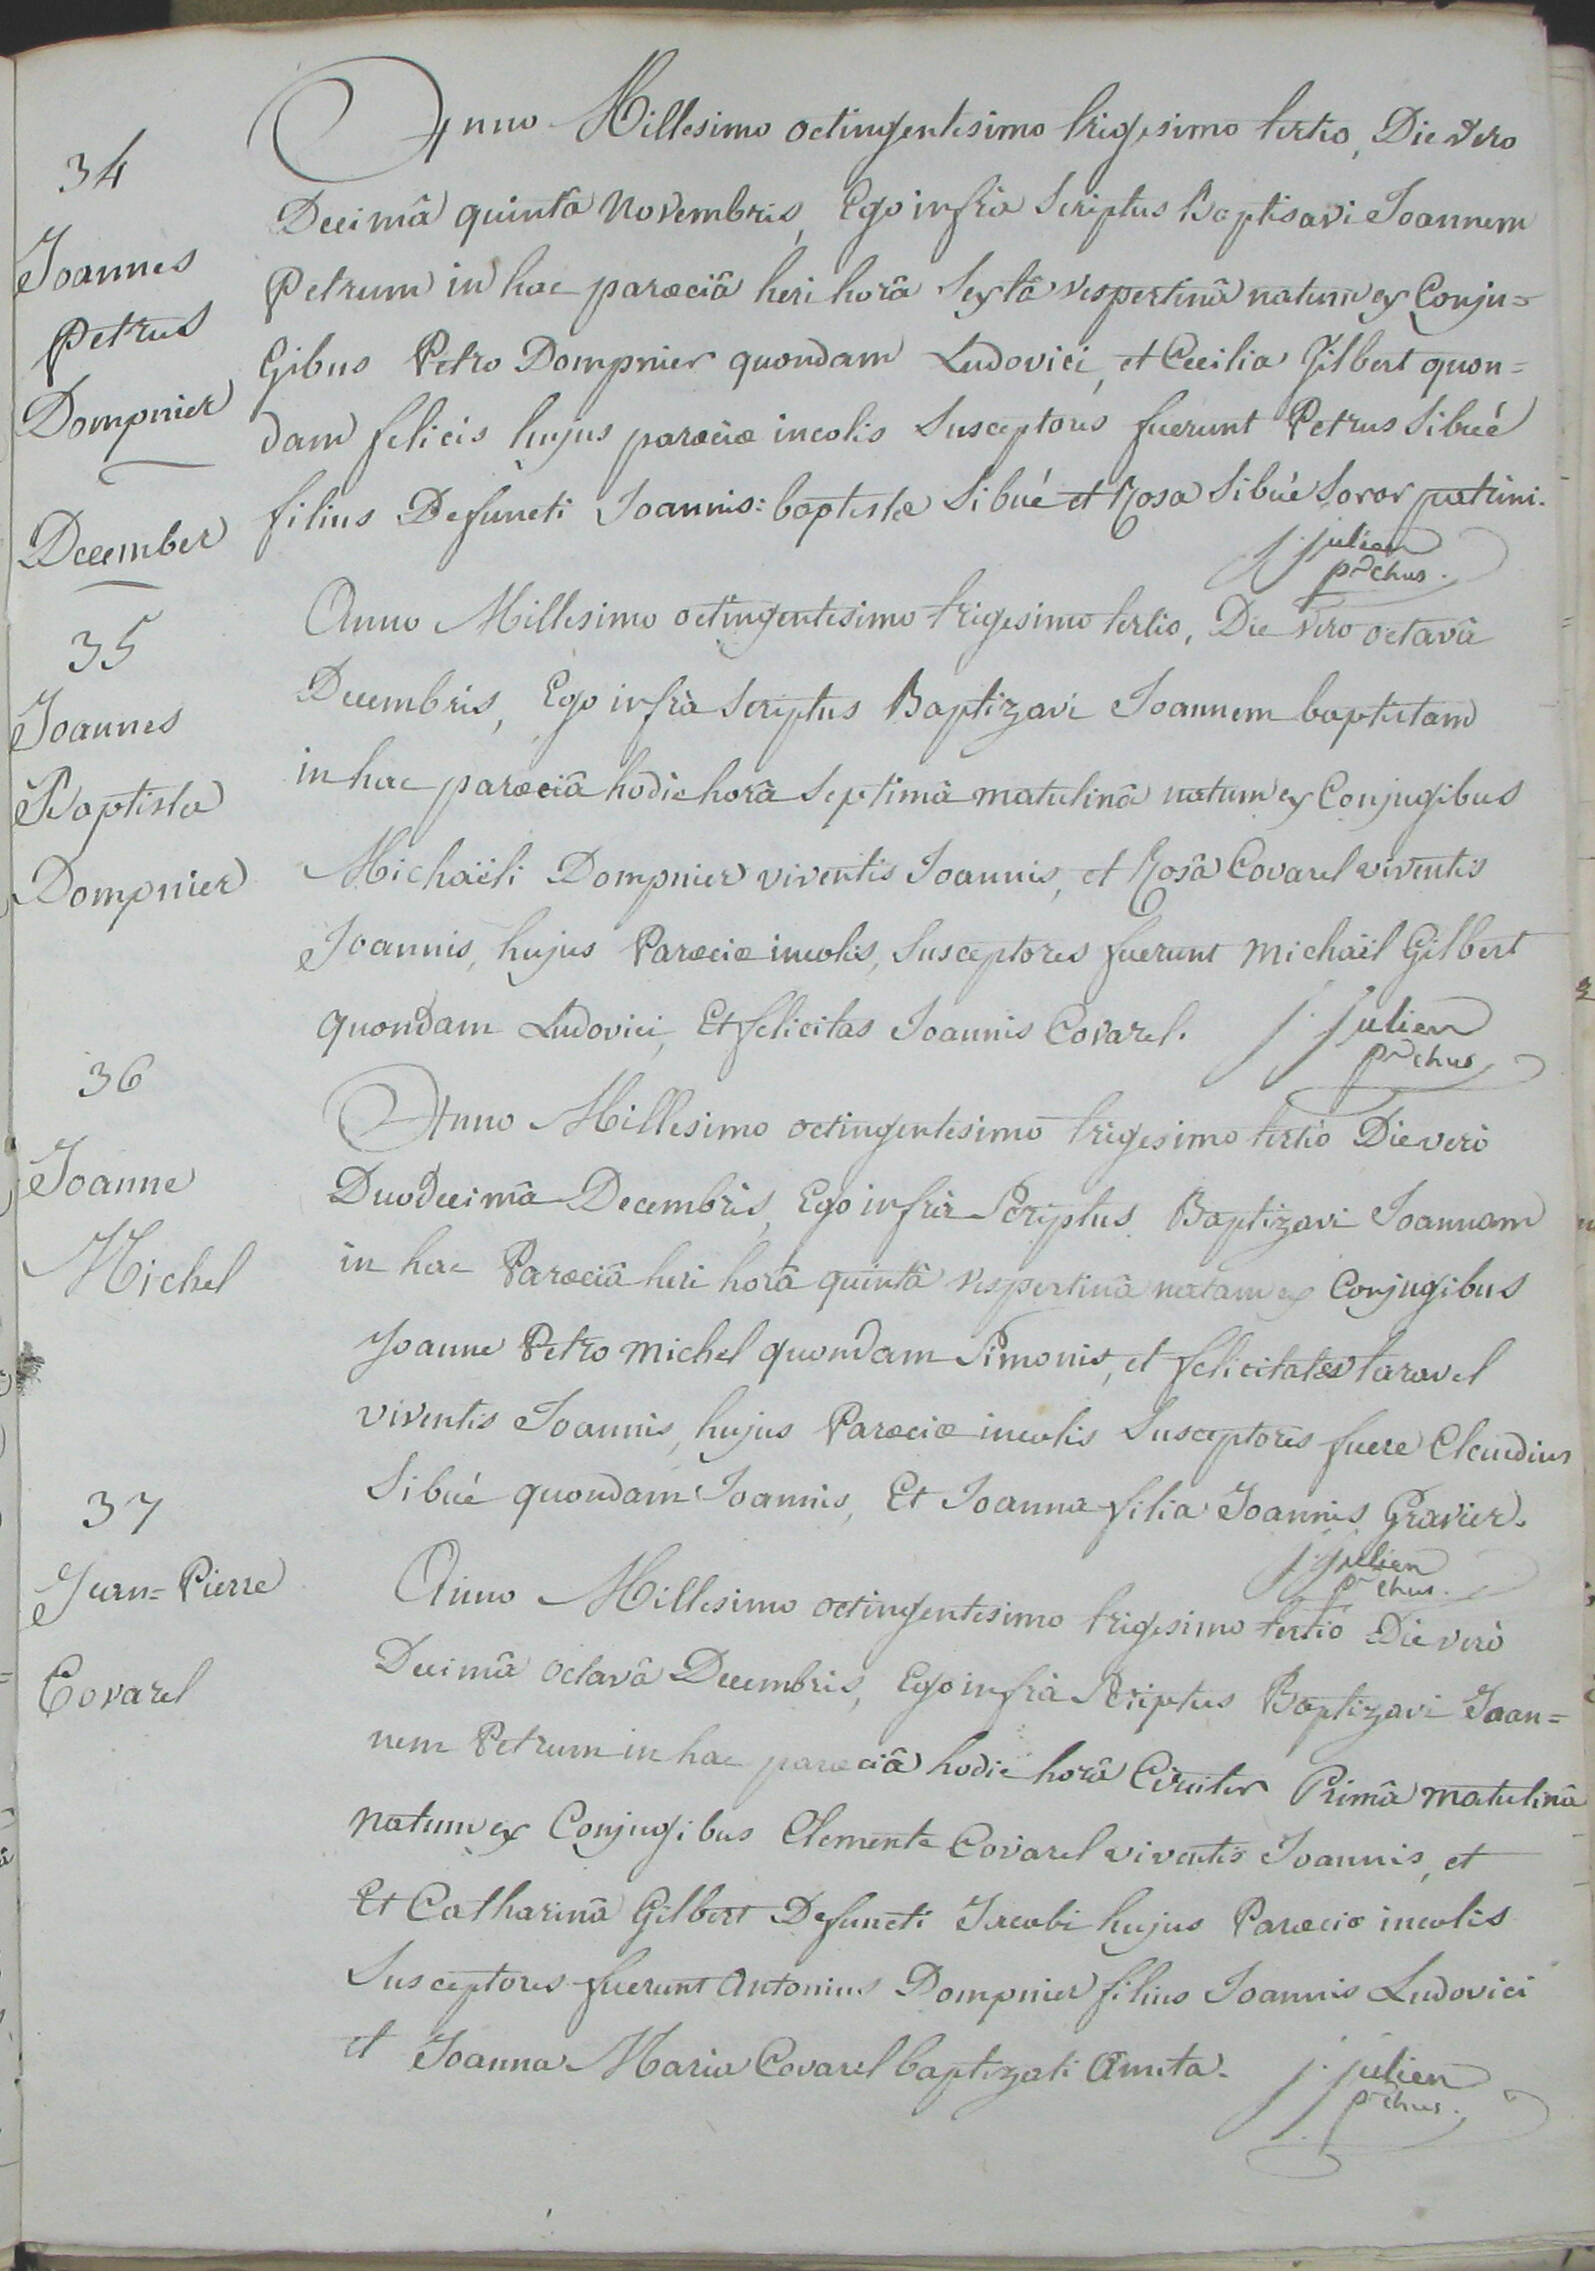 34
Joannes
Petrus
Dompnier
Anno Millesimo octingentesimo trigesimo tertio, Die vero
Decimâ quintâ novembris, Ego infrà Scriptus Baptisavi Joannem
Petrum in hac parœciâ heri horâ Sextâ vespertinâ natum ex Conju=
Gibus Petro Dompnier quondam Ludovici, et Cecilia Gilbert quon=
dam felicis hujus parœciæ incolis Susceptores fuerunt Petrus Sibué
filius Defuncti Joannis: baptistæ Sibué et Rosa Sibué Soror patrini.
j. julien
p~chus.
December
35
Joannes
Baptista
Dompnier
Anno Millesimo octingentesimo trigesimo tertio, Die vero octavâ
Decembris, Ego infrà Scriptus Baptizavi Joannem baptistam
in hac parœciâ hodie horâ Septimâ matutinâ natum ex Conjugibus
Michaëli Dompnier viventis Joannis, et Rosâ Covarel viventis
Joannis, hujus Parœciæ incolis, Susceptores fuerunt Michaël Gilbert
quondam Ludovici, Et felicitas Joannis Covarel.
j. julien
p~chus
36
Joanne
Michel
Anno Millesimo octingentesimo trigesimo tertio Die verò
Duodecimâ Decembris, Ego infrà Scriptus Baptizavi Joannam
in hac Parœciâ heri horâ quintâ vespertinâ natam ex Conjugibus
Joanne Petro Michel quondam Simonis, et felicitates taravel
viventis Joannis, hujus Parœciæ incolis Susceptores fuere Claudius
Sibué quondam Joannis, Et Joanna filia Joannis Gravier.
j. julien
p~chus.
37
Jean=Pierre
Covarel
Anno Millesimo octingentesimo trigesimo tertio Die verò
Decimâ octavâ Decembris, Ego infrà Scriptus Baptizavi Joan=
nem Petrum in hac parœciâ hodie horâ Circiter Primâ matutinâ
natum ex Conjugibus Clemente Covarel viventis Joannis, et
Et Catharinâ Gilbert Defuncti Jacobi hujus Parœciæ incolis
Susceptores fuerunt Antonius Dompnier filius Joannis Ludovici
et Joanna Maria Covarel baptizati Amita.
j. julien
p~chus.